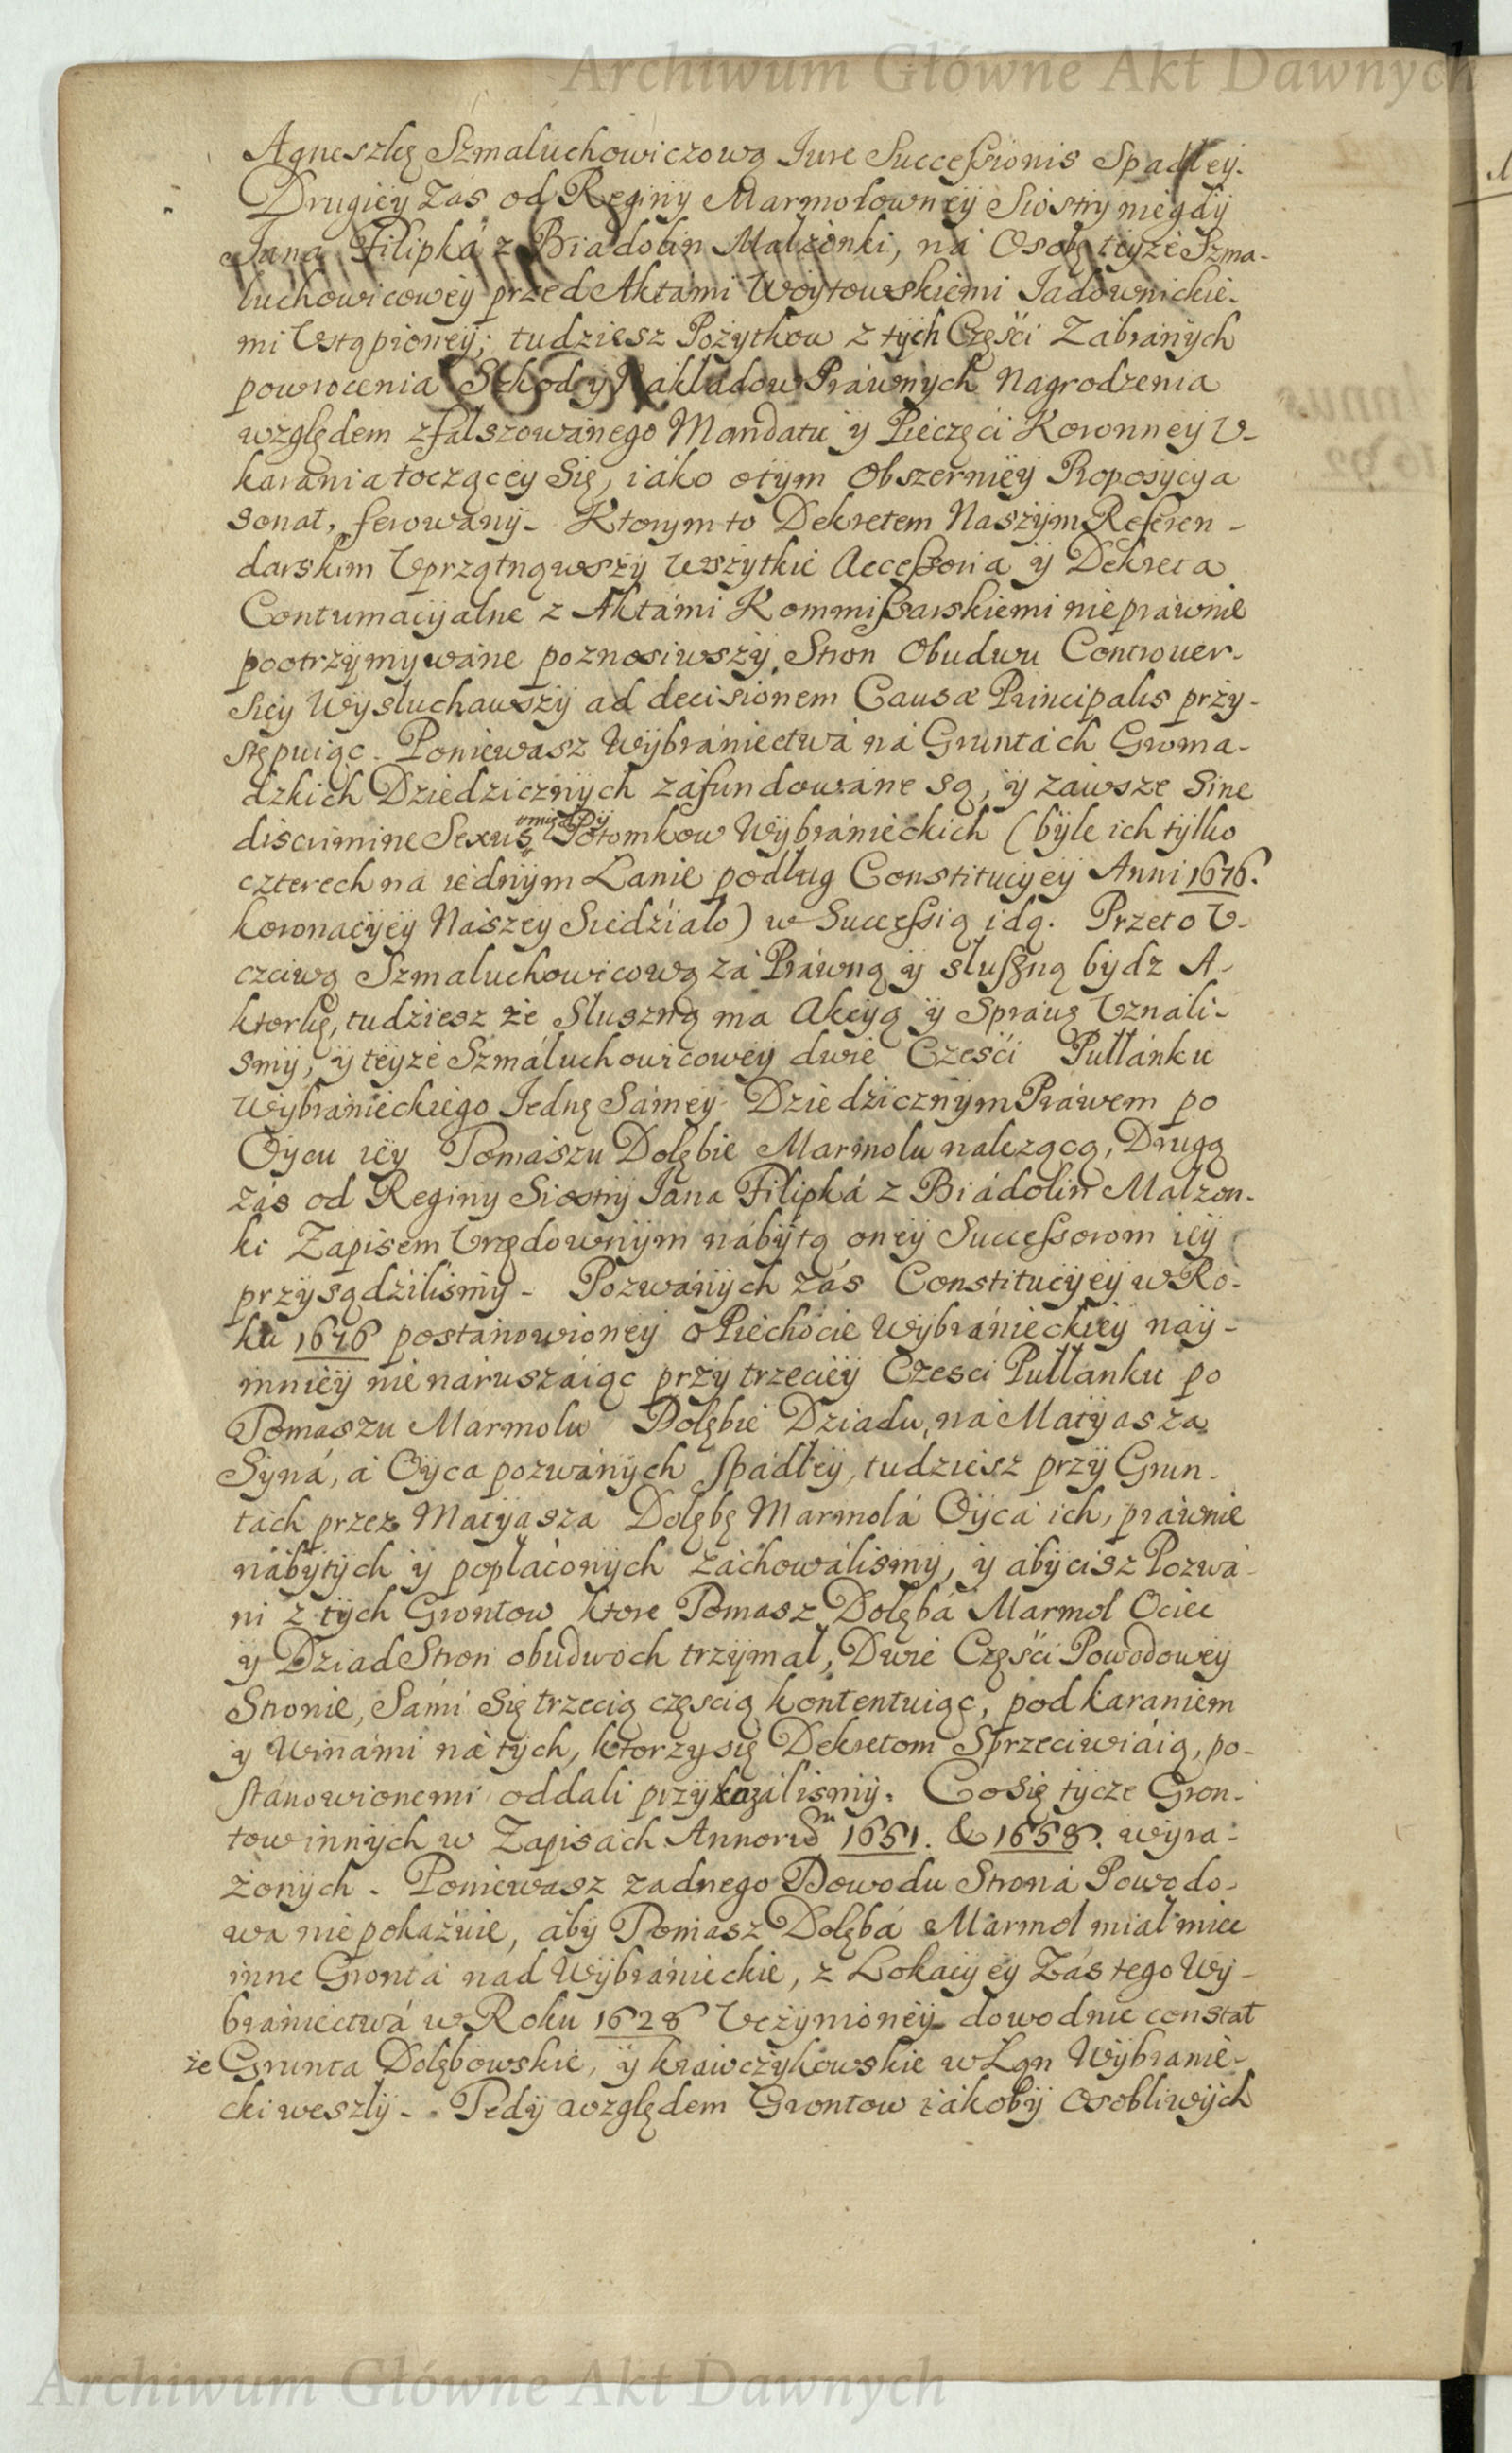 Archiwum Główne Akt Dawnych
Agneszkę Szmaluchowiczową Iure Succeßionis Spadłey.
Drugiey Zaś od Reginy Marmołowney Siostry niegdy
Jana Filipka z Biadolin Małżonki, na Osobę teyże Szma-
luchowicowey przed Aktámi Woytowskiemi Jadownickie-
mi Ustąpioney; tudziesz Pożytkow z tych Częśći Zábránych
powrocenia Szkod y Nakładow Práwnych Nagrodzenia
względem zfálszowánego Mandatu y Pieczęći Koronney U-
karánia toczącey Się, iáko otym Obszerniey Propozycya
sonat, ferowány. Ktorym to Dekretem Naszym Referen-
darskim Uprzątnąwszy wszytkie Acceßoria y Dekreta
Contumacyalne z Aktámi Kommißarskiemi niepráwnie
pootrzymywáne poznosiwszy Stron Obudwu Controuer-
siey Wysłuchawszy ad decisionem Causæ Principalis przy-
stępuiąc. Poniewasz Wybrániectwá ná Gruntách Groma-
dzkich Dziedzicznych záfundowáne są, y záwsze Sine
discrimine Sexus omiędzy Potomkow Wybránieckich (byle ich tylko
czterech na iednym Łanie podług Constitucyey Anni 1676.
koronacyey Nászey Siedźiało) w Succeßią idą. Przeto U-
czciwą Szmaluchowicową zá Práwną y słußną bydz A-
ktorkę, tudziesz że Słuszną ma Akcyą y Spráwę Uznali-
smy, y teyże Szmáluchowicowey dwie Cześći Pułłánku
Wybránieckiego Jednę Sámey Dziedzicznym Práwem po
Oycu iey Tomászu Dołębie Marmolu nalezącą, Drugą
záś od Reginy Siostry Jána Filipká z Biádolin Małzon-
ki Zapisem Urzędownym nábytą oney Succeßorom iey
przysądźiliśmy. Pozwánych záś Constitucyey w Ro-
ku 1676 postánowioney o Piechoćie Wybránieckiey nay-
mniey nie náruszáiąc przy trzeciey Czesci Pułłanku po
Tomaszu Marmolu Dołębie Dziadu, ná Matyasza
Syná, á Oyca pozwánych spádłey, tudziesz przy Grun-
tách przez Matyasza Dołębę Marmolá Oyca ich, práwnie
nábytych y popłáconych záchowáliśmy, y áby cisz Pozwá-
ni z tych Grontow ktore Tomasz Dołębá Marmol Ociec
y Dziad Stron obudwoch trzymał, Dwie Częśći Powodowey
Stronie, Sámi Się trzecią częscią kontentuiąc, pod karaniem
y Winámi ná tych, ktorzy się Dekretom Sprzeciwiáią, po-
stánowionemi oddali przykazáliśmy. Co się tycze Gron-
tow innych w Zapisách Annorũm 1651. & 1658. wyra-
żonych. Poniewasz zadnego Dowodu Strona Powodo-
wa nie pokaźuie, aby Tomasz Dołębá Marmol miał miec
inne Grontá nad Wybránieckie, z Lokacyey Záś tego Wy-
brániectwá w Roku 1628 Uczynioney dowodnie constat
że Grunta Dołębowskie, y kráwczykowskie w Łan Wybranie-
cki weszły. Tedy względem Grontow iákoby Osobliwych
Archiwum Główne Akt Dawnych